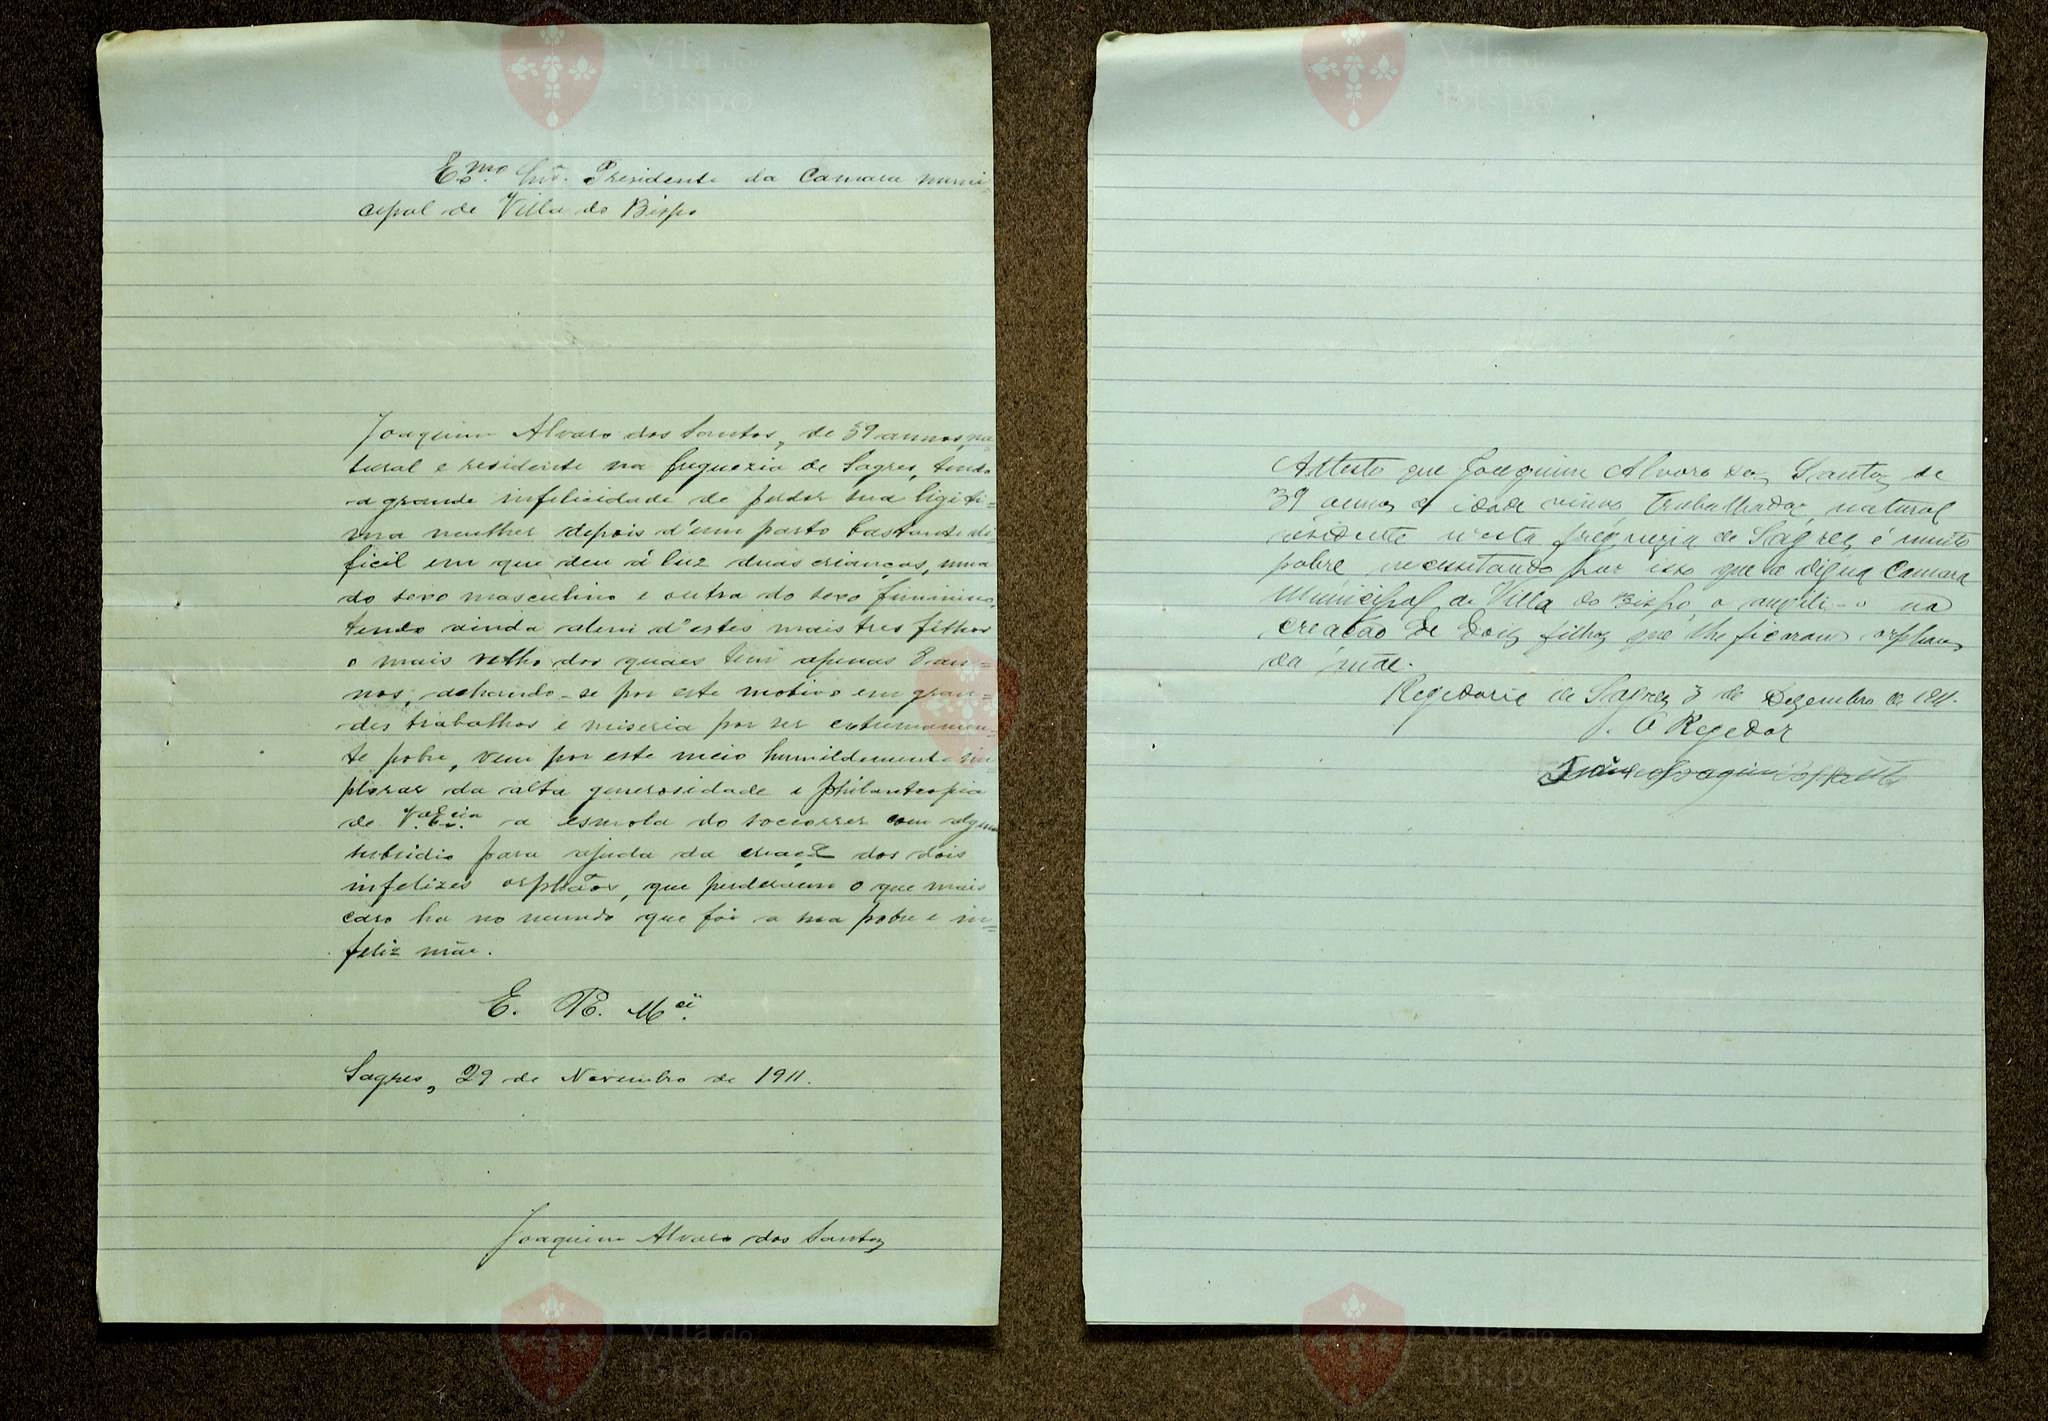 E.mo Snr. Presidente da Camara muni=
cipal de Villa do Bispo
Joaquim Alvaro dos Santos, de 39 annos, na
tural e residente na freguezia de Sagres, tendo
a grande infelicidade de perder sua ligiti=
ma mulher depois d'um parto bastante di
ficil em que deu á luz duas crianças, uma
do sexo masculino e outra do sexo feminino,
tendo ainda alem d'estes mais tres filhos
o mais velho dos quaes tem apenas 8 an=
nos, achando-se por este motivo em gran=
des trabalhos e miseria por ser extremamen=
te pobre, vem por este meio humildemente im
plorar da alta generosidade e philantropia
de V.a E.cia a esmola do soccorrer com algum
subsidio para ajuda da criaçã dos dois
infelizes orphãos, que perderam o que mais
caro ha no mundo que foi a sua pobre e in=
feliz mãe.
E. R. M.cê
Sagres, 29 de Novembro de 1911.
Joaquim Alvaro dos Santos
Attesto que Joaquim Alvaro dos Santos de
39 annos de idade viuvo, trabalhador, natural
residente n'esta freguezia de Sagres, é muito
pobre necessitando por isso que a digna Camara
Municipal de Villa do Bispo, o auxili-o na
creação de dois filhos que lhe ficaram orphans
da mãe.
Regedoria de Sagres 3 de Dezembro de 1911.
O Regedor
Joaquim
Vila do
Bispo
Vila do
Bispo
Vila do
Bispo
Vila do
Bispo